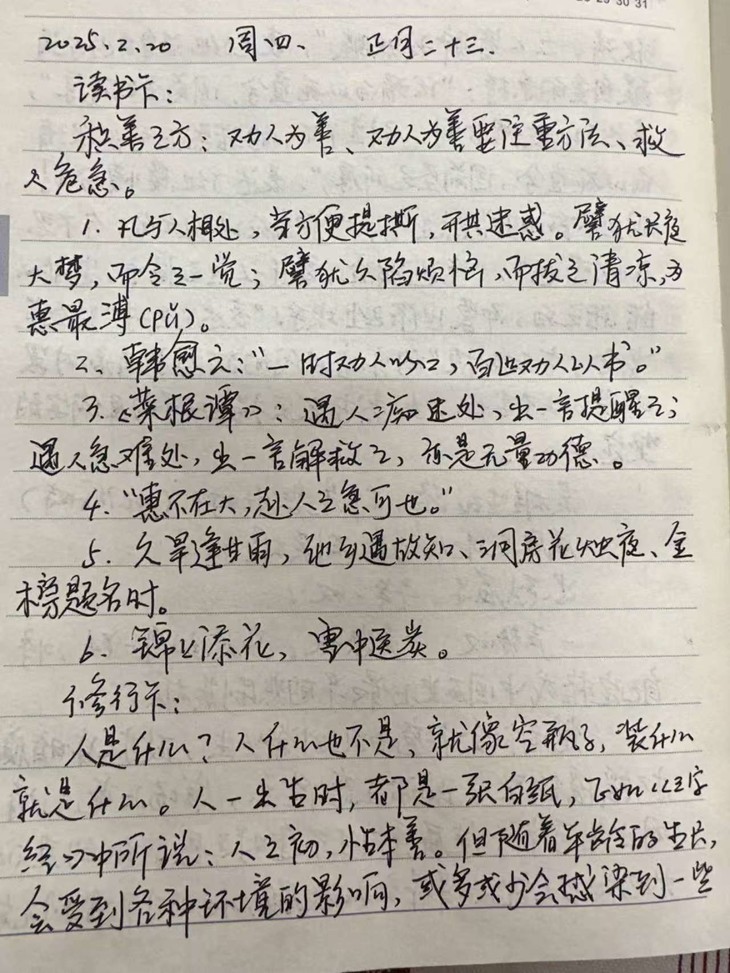 29 30 31
2025.2.20 周四. 正月二十三.
读书卡：
积善之方：劝人为善、劝人为善要注重方法、救
人危急。
1. 凡与人相处，当方便提撕，开其迷惑。譬犹长夜
大梦，而令之一觉；譬犹久陷烦恼，而拔之清凉，为
惠最溥(pǔ)。
2. 韩愈云："一时劝人以口，百世劝人以书。"
3.《菜根谭》：遇人痴迷处，出一言提醒之；
遇人急难处，出一言解救之，亦是无量功德。
4. "惠不在大，赴人之急可也。"
5. 久旱逢甘雨，他乡遇故知、洞房花烛夜、金
榜题名时。
6. 锦上添花，雪中送炭。
修行卡：
人是什么？人什么也不是，就像空瓶子，装什么
就是什么。人一出生时，都是一张白纸，正如《三字
经》中所说：人之初，性本善。但随着年龄的生长，
会受到各种环境的影响，或多或少会感染到一些